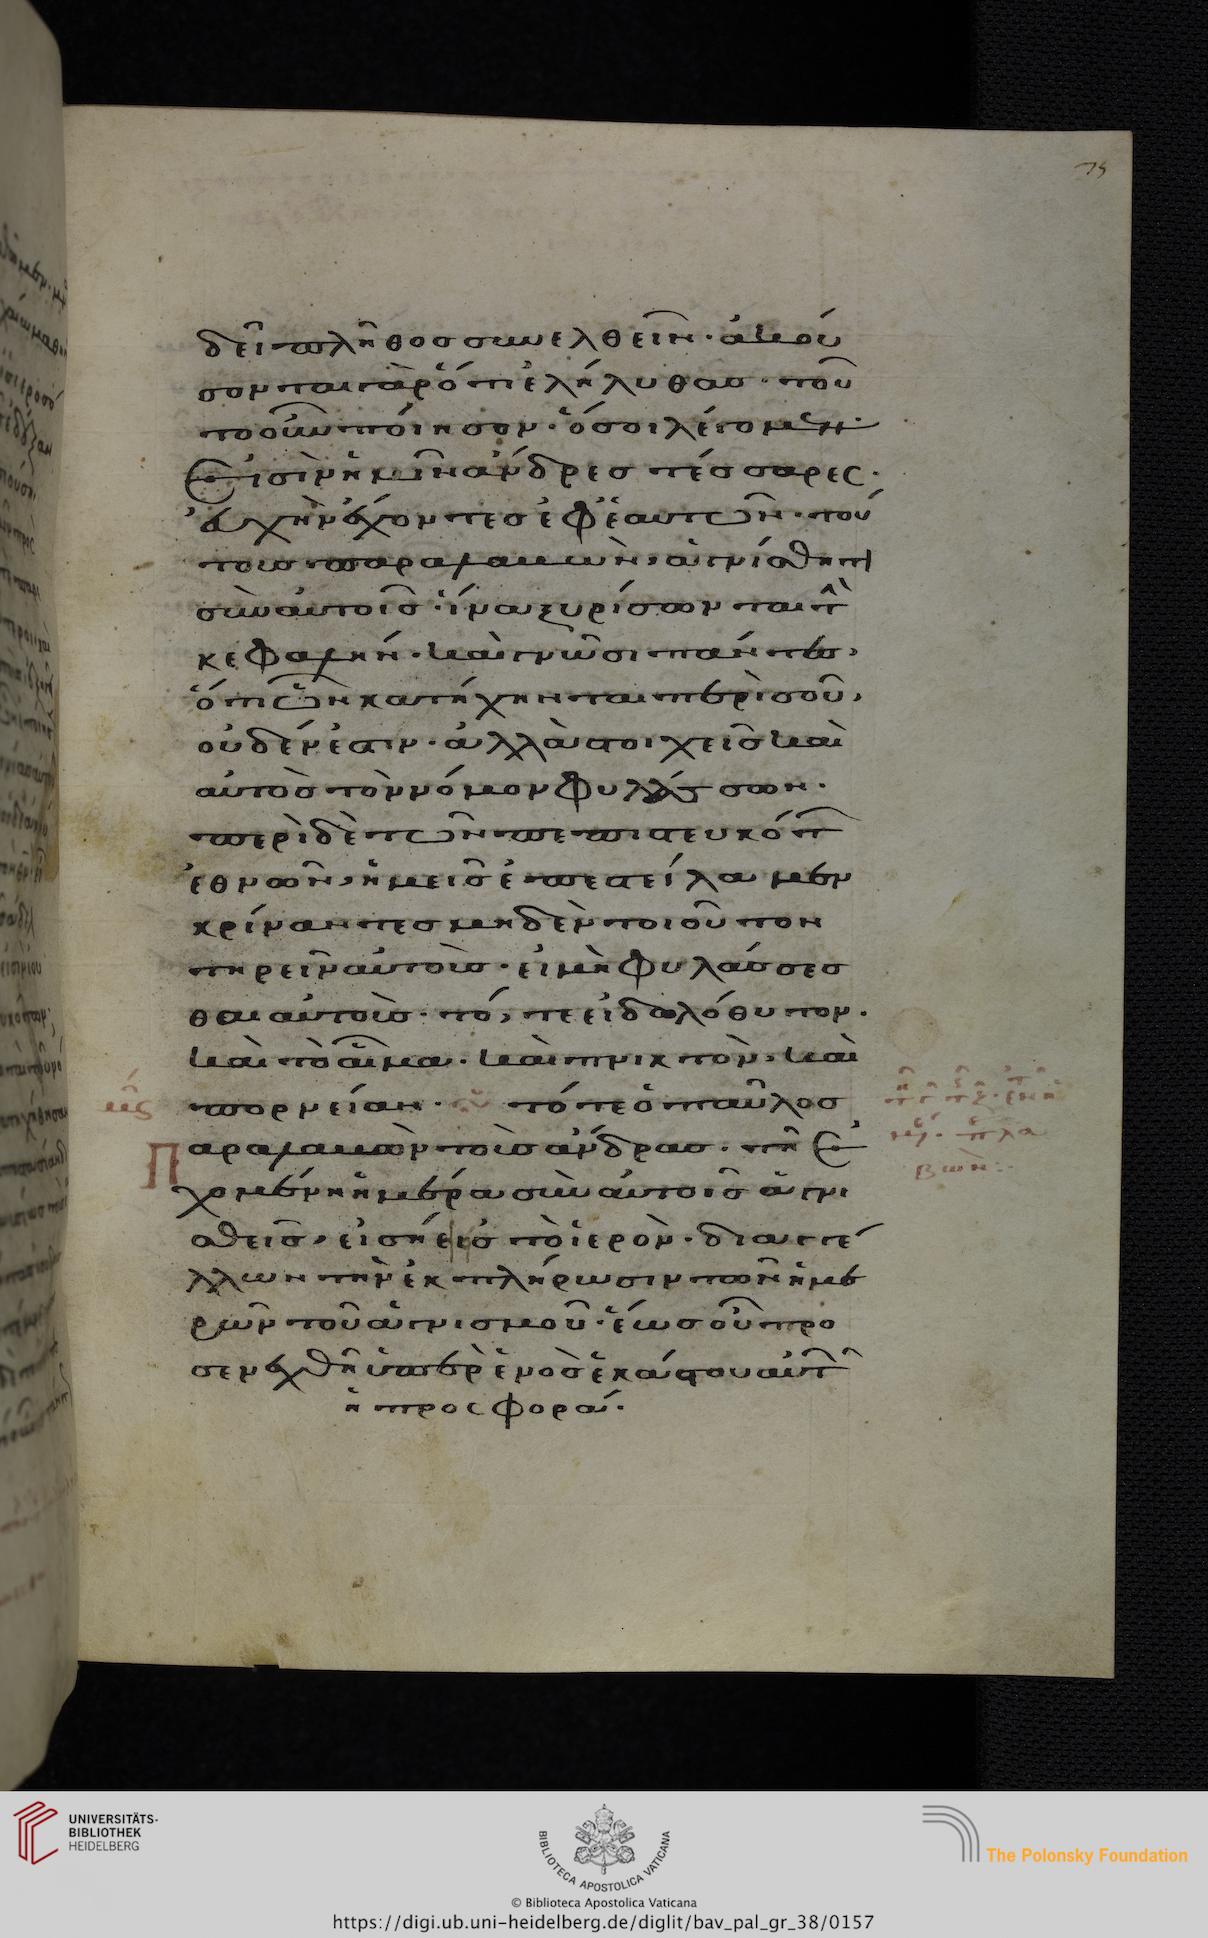 75
δεῖ πλῆθος συνελθεῖν· ἀκού
σονται γὰρ ὅτι ἐλήλυθας· τοῦ
το οὖν ποίησον· ὅ σοι λέγομεν·
εἰσὶν ἡμῖν ἄνδρες τέσσαρες·
εὐχὴν ἔχοντες ἐφ' ἑαυτῶν· τού
τους παραλαβὼν, ἁγνίσθητι
σὺν αὐτοῖς· ἵνα ξυρίσωνται τὴ
κεφαλήν· καὶ γνῶσι πάντες,
ὅτι ὧν κατήχηνται περὶ σοῦ,
οὐδέν ἐστιν· ἀλλὰ στοιχεῖς καὶ
αὐτὸς τὸν νόμον φυλάσσων·
περὶ δὲ τῶν πεπιστευκότ
ἐθνῶν, ἡμεῖς ἐπεστείλαμεν
κρίναντες μηδὲν τοιοῦτον
τηρεῖν αὐτοὺς· εἰ μὴ φυλάσσεσ
θαι αὐτοὺς· τό, τε εἰδωλόθυτον·
καὶ τὸ αἷμα· καὶ πνικτὸν· καὶ
πορνείαν· τότε ὁ παῦλος
παραλαβὼν τοὺς ἄνδρας· τῆ ἐ
χομένη ἡμέρα σὺν αὐτοῖς ἁγνι
σθεὶς, εἰσήει εἰς τὸ ἱερὸν· διαγγέ
λλων τὴν ἐκπλήρωσιν τῶν ἡμε
ρῶν τοῦ ἁγνισμοῦ· ἕως οὗ προ
σενεχθῆ ὑπὲρ ἑνὸς ἑκάστου αὐτ
ἡ προσφορά·
UNIVERSITÄTS-
BIBLIOTHEK
HEIDELBERG
BIBLIOTECA APOSTOLICA VATICANA
The Polonsky Foundation
© Biblioteca Apostolica Vaticana
https://digi.ub.uni-heidelberg.de/diglit/bav_pal_gr_38/0157